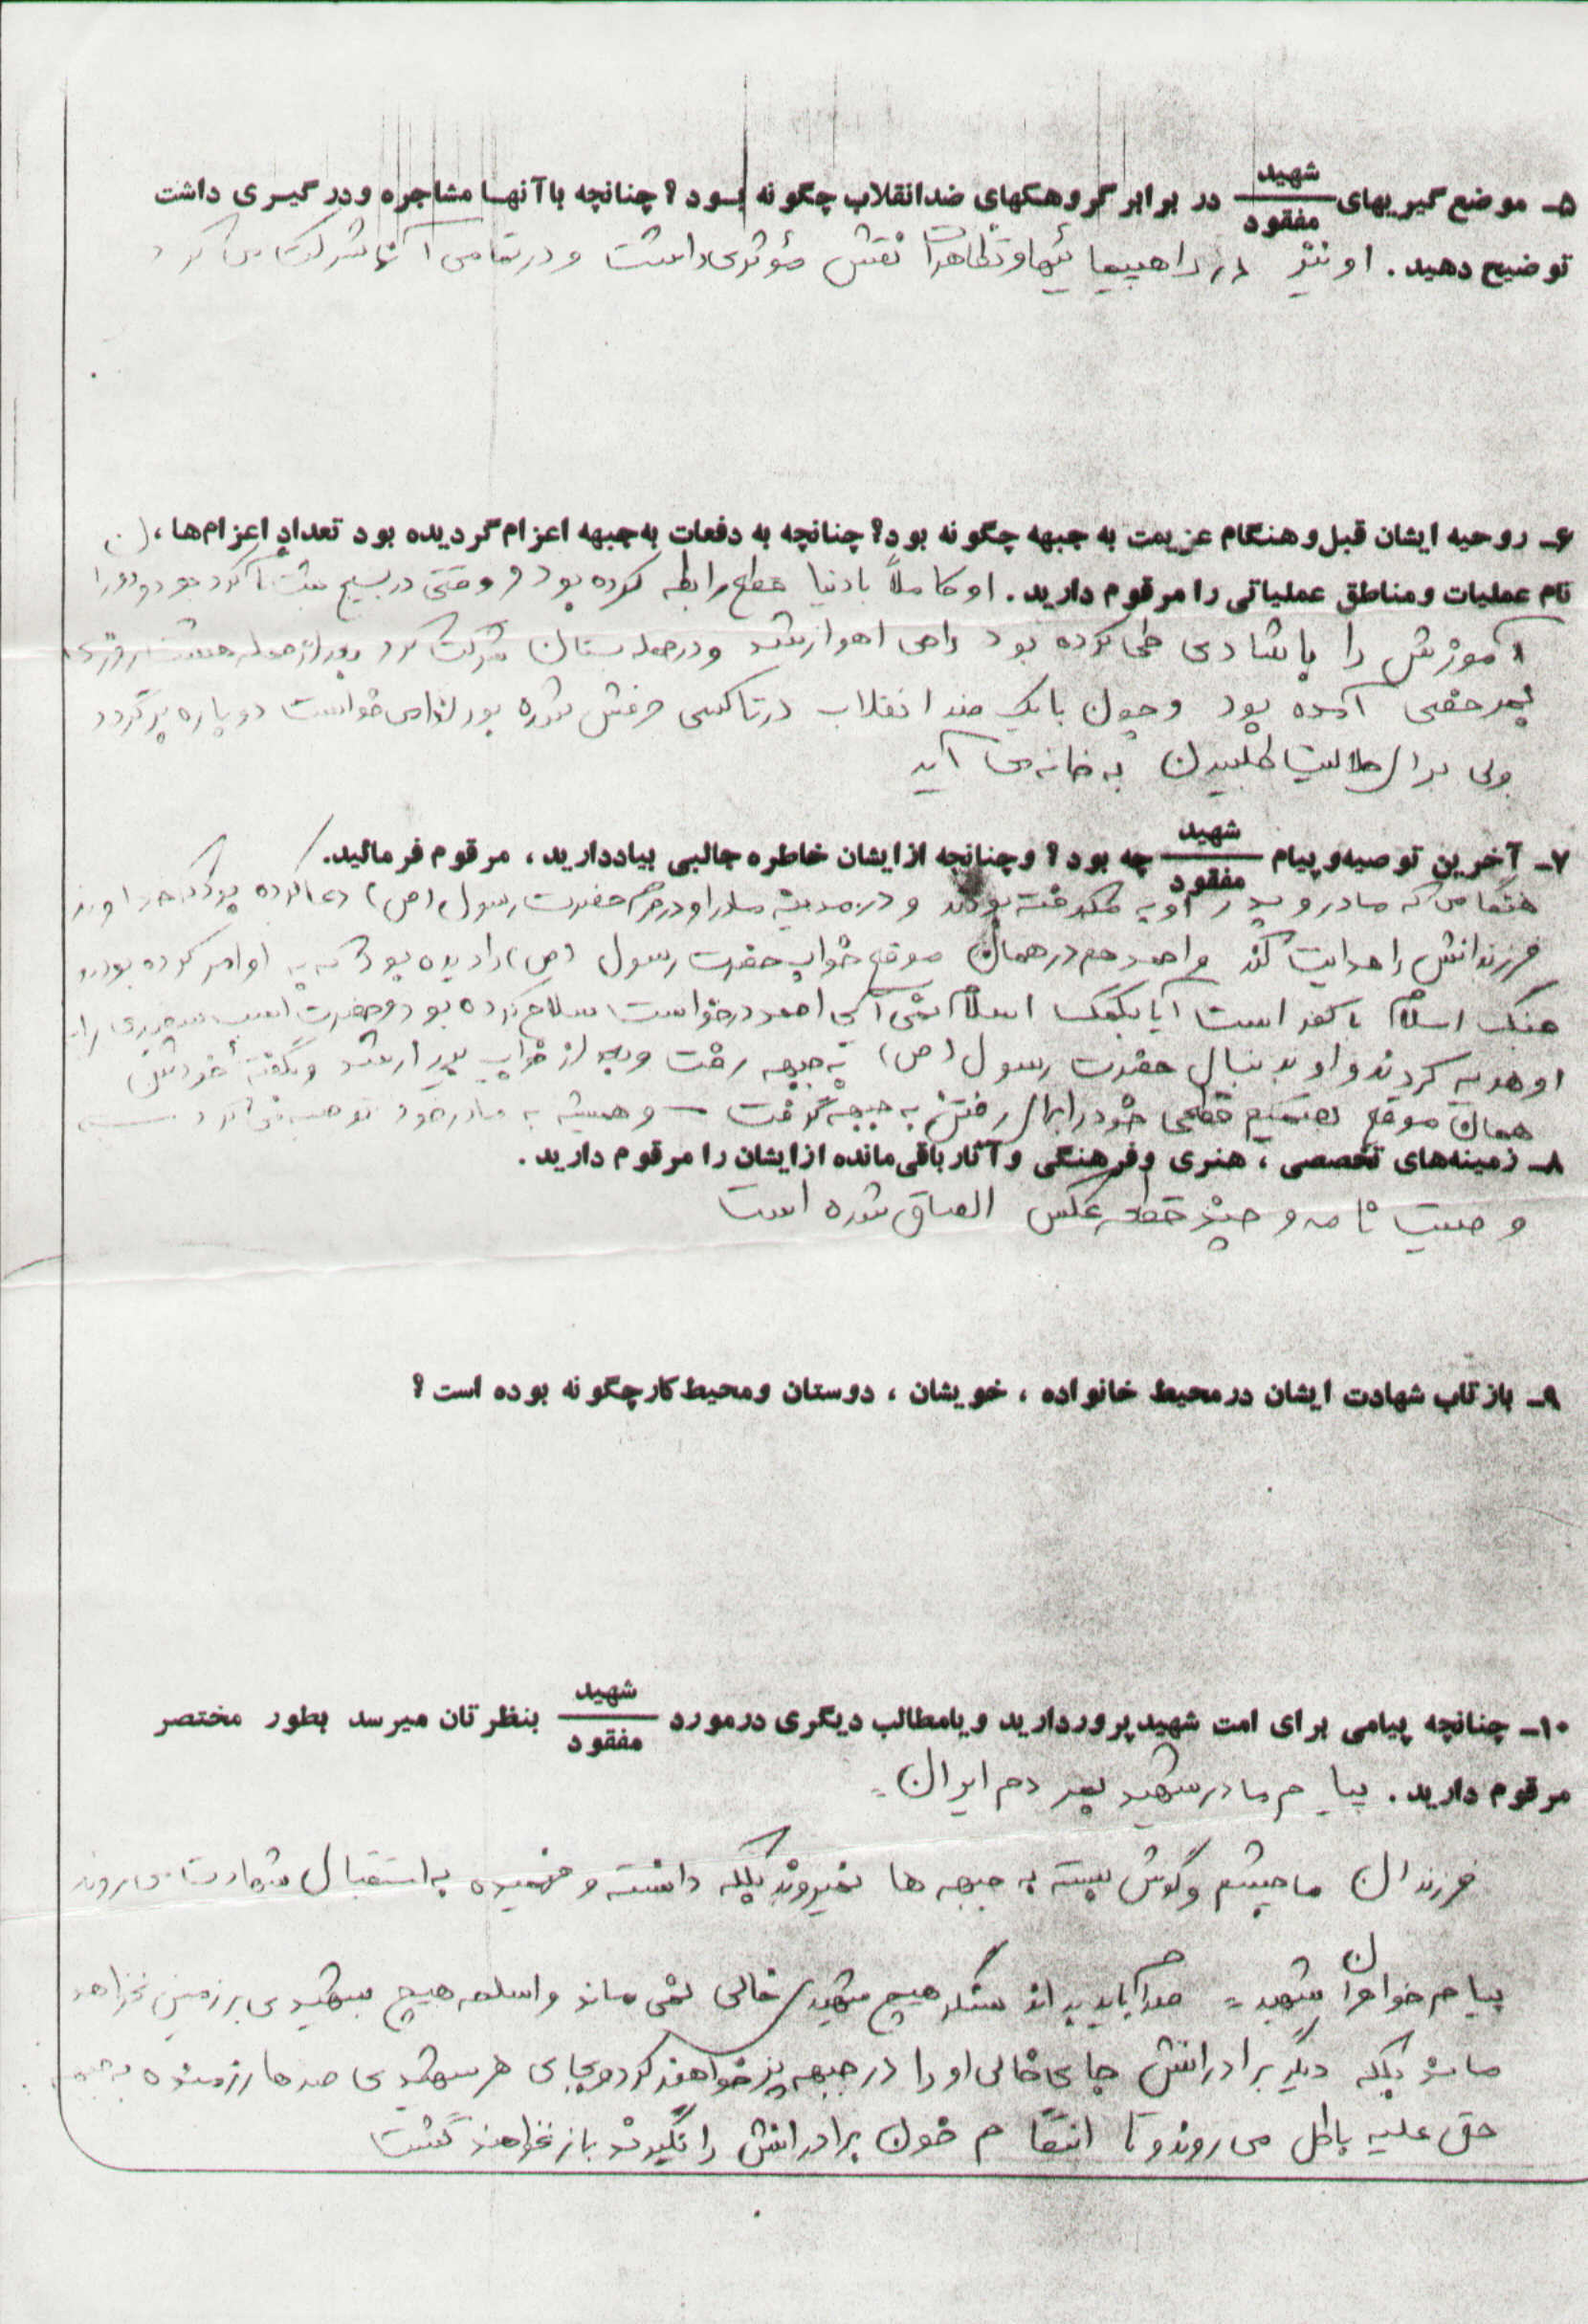 ۵ـ موضع گیریهای شهید/مفقود در برابر گروهکهای ضدانقلاب چگونه بود؟ چنانچه باآنها مشاجره ودرگیری داشت
توضیح دهید. او نیز در راهپیمائیها و تظاهرات نقش مؤثری داشت و در تمامی آنها شرکت می کرد
۶ـ روحیه ایشان قبل وهنگام عزیمت به جبهه چگونه بود؟ چنانچه به دفعات به جبهه اعزام گردیده بود تعداد اعزام‌ها،
نام عملیات ومناطق عملیاتی را مرقوم دارید. او کاملاً با دنیا قطع رابطه کرده بود و وقتی در بسیج ثبت نام کرد
آموزش را با شادی طی کرده بود راهی اهواز شد و در حمله بستان شرکت کرد بعد از حمله هشت روزی
بمرخصی آمده بود و چون با یک ضد انقلاب در تاکسی حرفش شده بود لذا می خواست دوباره برگردد
ولی برای حلالیت طلبیدن به خانه می آید
۷ـ آخرین توصیه وپیام شهید/مفقود چه بود؟ وچنانچه ازایشان خاطره جالبی بیاددارید، مرقوم فرمائید.
هنگامی که مادر و پدر او به مکه رفته بودند و در مدینه مادر او در حرم حضرت رسول (ص) دعا کرده بود که خداوند
فرزندانش را هدایت کند و احمد هم در همان موقع خواب حضرت رسول (ص) را دیده بود که به او امر کرده بودند
جنگ اسلام با کفر است آیا بکمک اسلام نمی آئی احمد درخواست سلاح کرده بود و حضرت اسب را به
او هدیه کردند و او بدنبال حضرت رسول (ص) به جبهه رفت و بعد از خواب بیدار شد و بگفته خودش
همان موقع تصمیم قطعی خود را برای رفتن به جبهه گرفت ـ و همیشه به مادر خود توصیه می کرد
۸ـ زمینه‌های تخصصی، هنری وفرهنگی وآثارباقی‌مانده ازایشان را مرقوم دارید.
وصیت نامه و چند قطعه عکس الصاق شده است
۹ـ بازتاب شهادت ایشان درمحیط خانواده، خویشان، دوستان ومحیط کارچگونه بوده است؟
۱۰ـ چنانچه پیامی برای امت شهیدپرورداریدویامطالب دیگری درمورد شهید/مفقود بنظرتان میرسد بطور مختصر
مرقوم دارید. پیام مادر شهید بمردم ایران =
فرزندان ما چشم و گوش بسته به جبهه ها نمیروند بلکه دانسته و فهمیده به استقبال شهادت می روند
پیام خواهران شهید = صدام باید بداند سنگر هیچ شهیدی خالی نمی ماند و اسلحه هیچ شهیدی بر زمین نخواهد
ماند بلکه دیگر برادرانش جای خالی او را در جبهه پر خواهند کرد و بجای هر شهیدی صدها رزمنده به جبهه
حق علیه باطل می روند و تا انتقام خون برادرانش را نگیرند باز نخواهند گشت